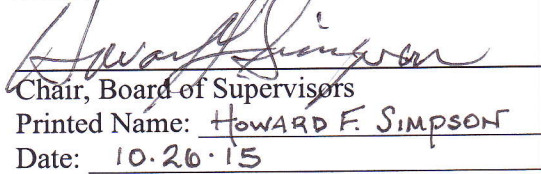 Howard F. Simpson
Chair, Board of Supervisors
Printed Name: HOWARD F. SIMPSON
Date: 10.26.15